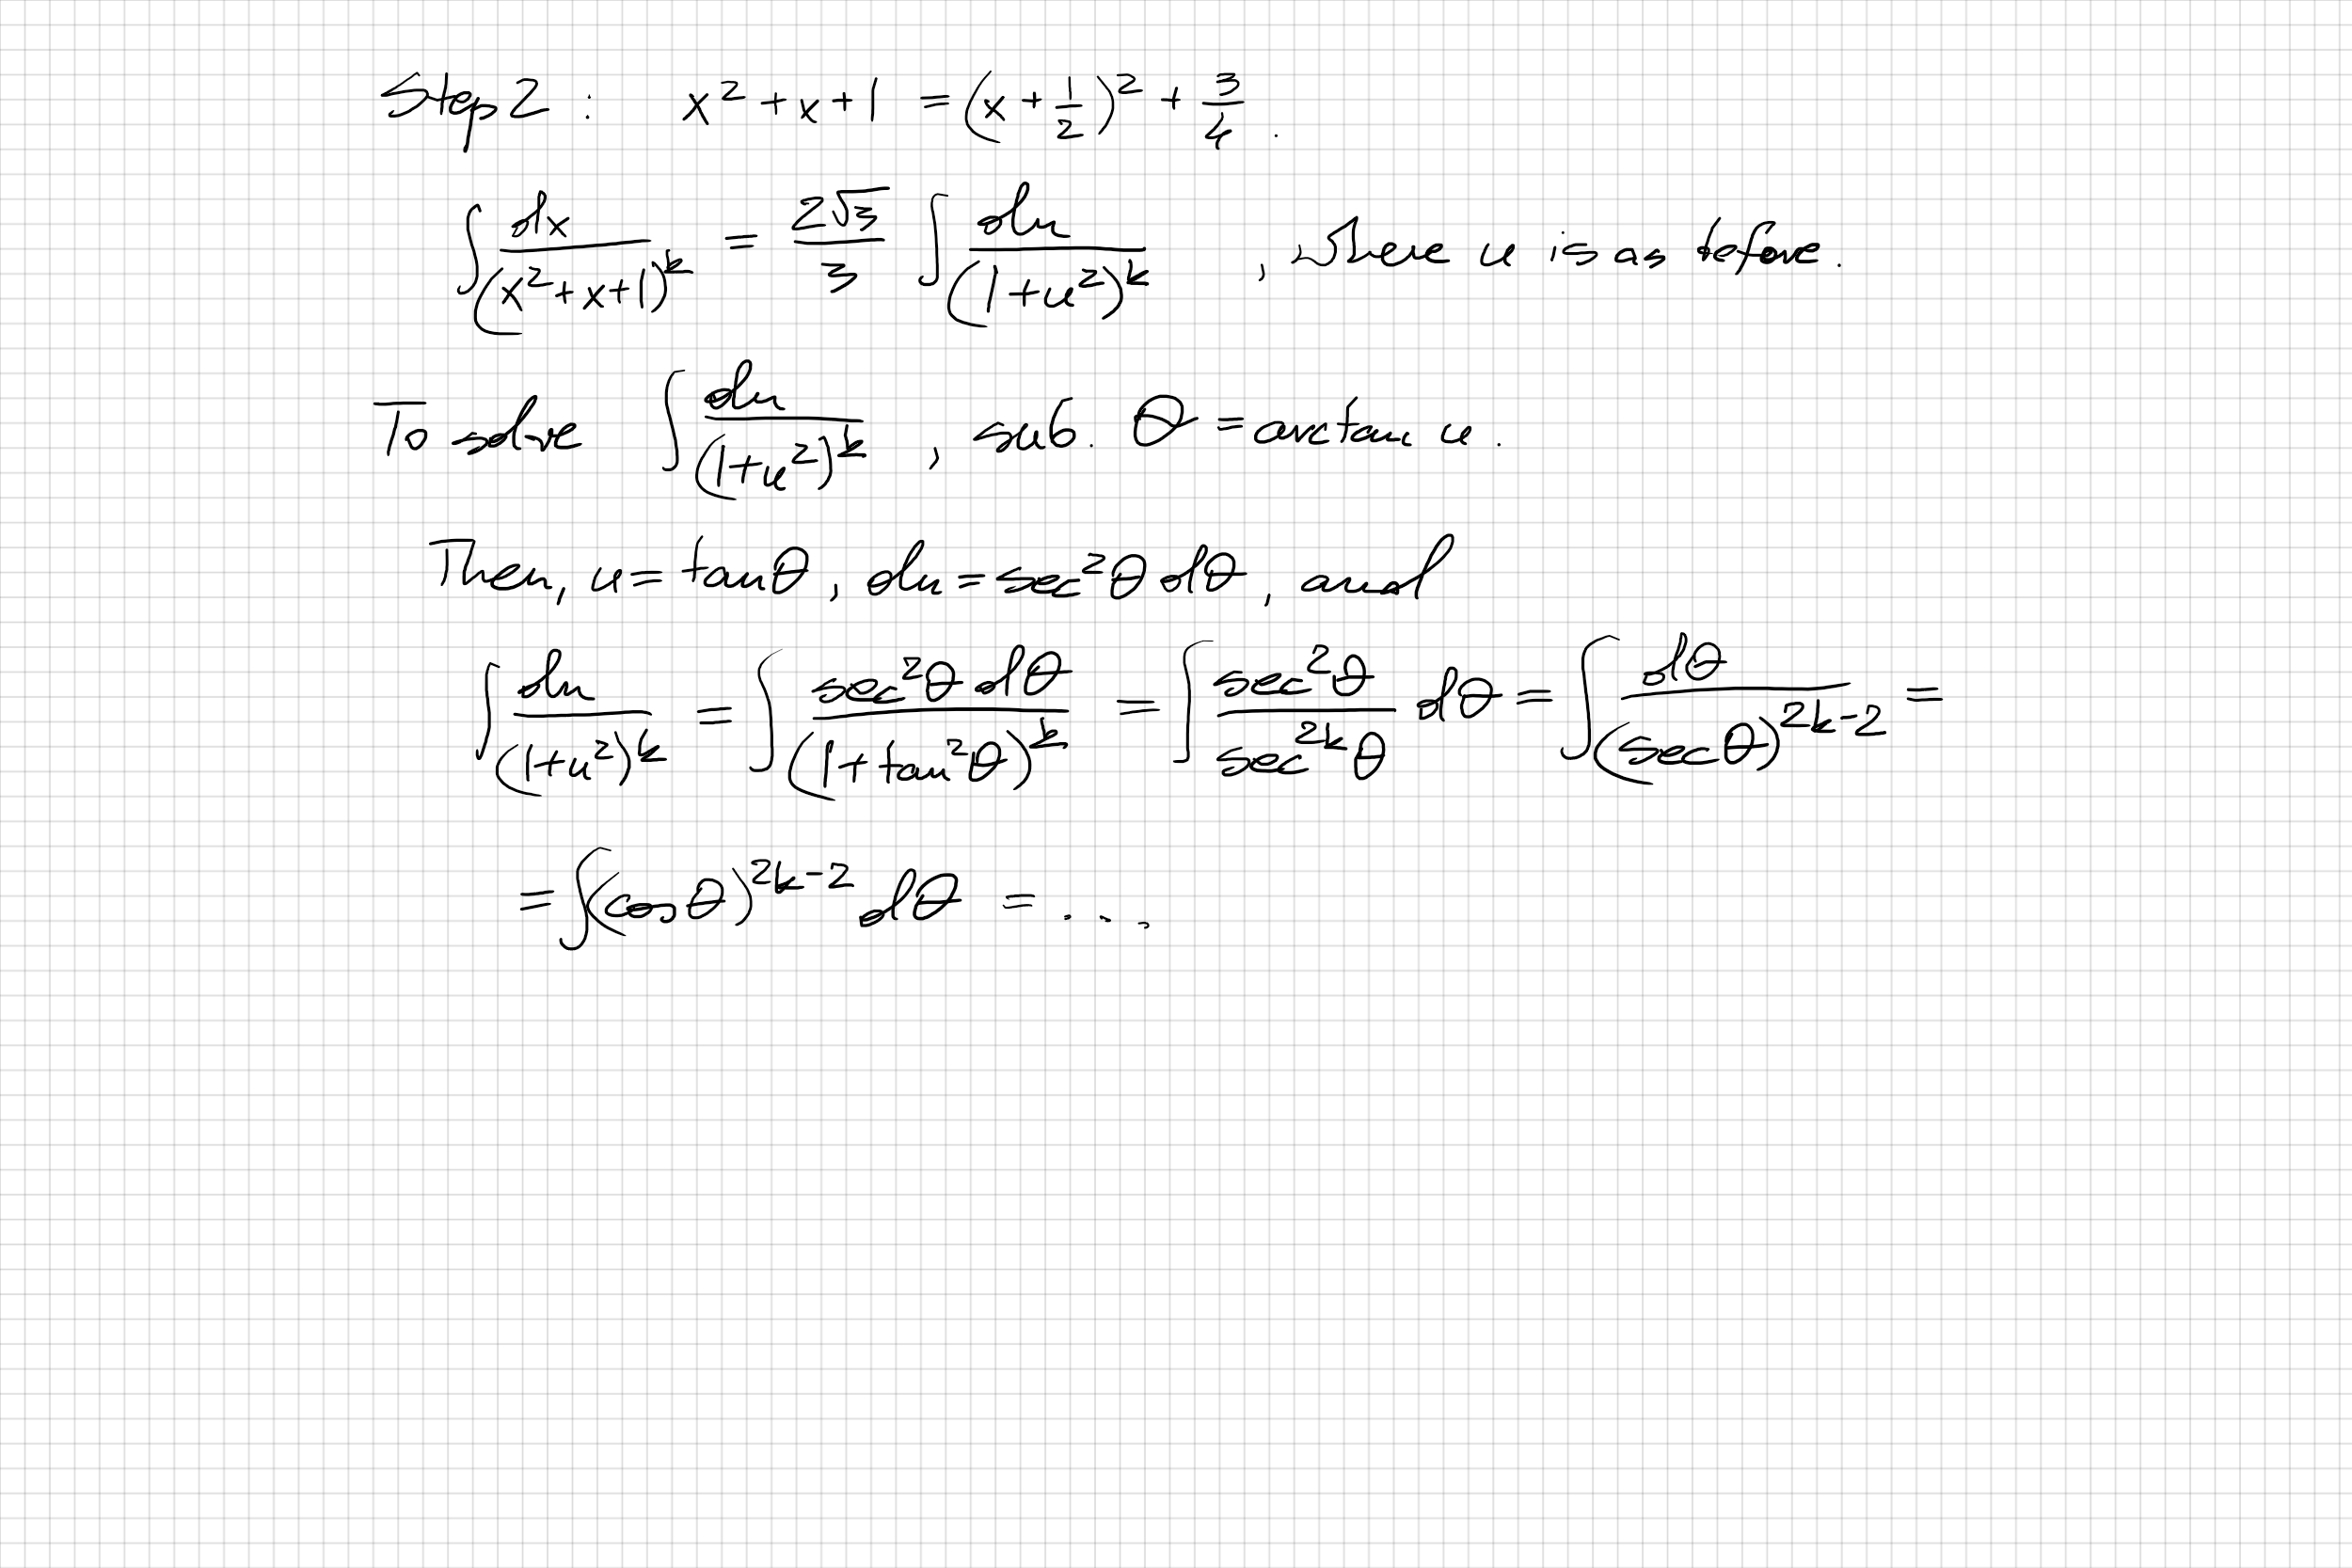 Step 2 : x² + x + 1 = (x + 1/2)² + 3/4 .
∫ dx/(x² + x + 1)^k = 2√3/3 ∫ du/(1 + u²)^k , where u is as before.
To solve ∫ du/(1+u²)^k , sub. θ = arctan u .
Then, u = tan θ , du = sec² θ dθ , and
∫ du/(1+u²)^k = ∫ sec² θ dθ/(1 + tan² θ)^k = ∫ sec² θ/sec^{2k} θ dθ = ∫ dθ/(sec θ)^{2k-2} =
= ∫ (cos θ)^{2k-2} dθ = ...